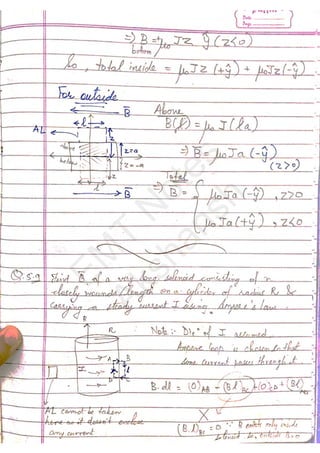 Date
Page
⇒ B = +μ₀ J z ŷ (z<0)
bottom
So, total inside = μ₀ J z (+ŷ) + μ₀ J z (-ŷ)
For outside
B̄
Above
AL
l
B(l) = μ₀ J (la)
⇒ B̄ = μ₀ J a (-ŷ)
(z>0)
z=a
z=-a
z
Total
⇒ B̄ = { μ₀ J a (-ŷ) , z>0
B̄
μ₀ J a (+ŷ) , z<0
Q.5.9 Find B̄ of a very long solenoid consisting of n
closely wounds/length on a cylinder of radius R &
carrying a steady current I using Ampere's law.
R
Note:- Dirⁿ of I assumed
Ampere loop is chosen so that
some current passes through it
A B
I l
D C
B.dl = (0)AB - (Bl)BC + (0)CD + (Bl)
AL cannot be taken
here as it doesn't enclose
any current
X
(B.l)BC = 0 ∵ B exists only inside
solenoid so, outside B=0